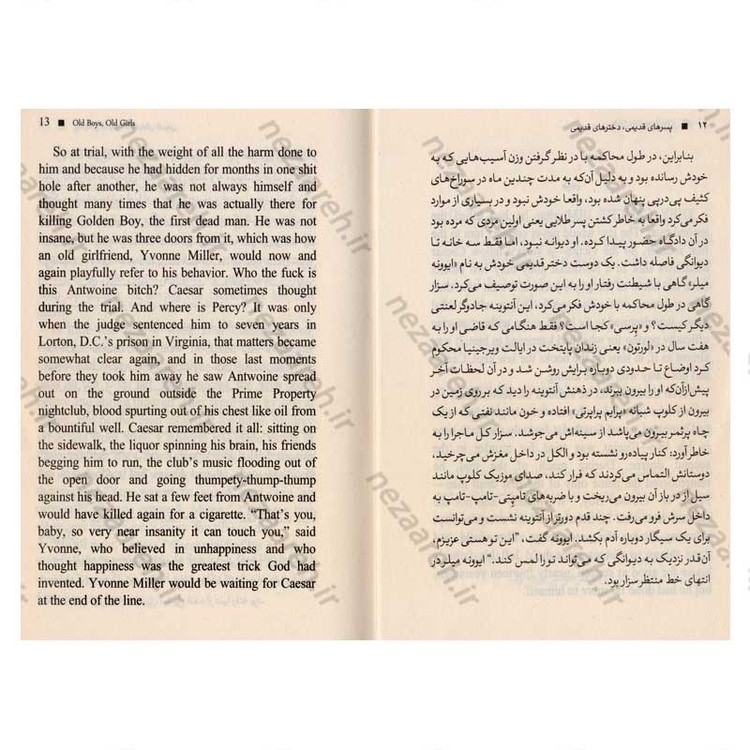 13 ■ Old Boys, Old Girls
So at trial, with the weight of all the harm done to
him and because he had hidden for months in one shit
hole after another, he was not always himself and
thought many times that he was actually there for
killing Golden Boy, the first dead man. He was not
insane, but he was three doors from it, which was how
an old girlfriend, Yvonne Miller, would now and
again playfully refer to his behavior. Who the fuck is
this Antwoine bitch? Caesar sometimes thought
during the trial. And where is Percy? It was only
when the judge sentenced him to seven years in
Lorton, D.C.'s prison in Virginia, that matters became
somewhat clear again, and in those last moments
before they took him away he saw Antwoine spread
out on the ground outside the Prime Property
nightclub, blood spurting out of his chest like oil from
a bountiful well. Caesar remembered it all: sitting on
the sidewalk, the liquor spinning his brain, his friends
begging him to run, the club's music flooding out of
the open door and going thumpety-thump-thump
against his head. He sat a few feet from Antwoine and
would have killed again for a cigarette. "That's you,
baby, so very near insanity it can touch you," said
Yvonne, who believed in unhappiness and who
thought happiness was the greatest trick God had
invented. Yvonne Miller would be waiting for Caesar
at the end of the line.
۱۲ ■ پسرهای قدیمی، دخترهای قدیمی
بنابراین، در طول محاکمه با در نظر گرفتن وزن آسیب‌هایی که به
خودش رسانده بود و به دلیل آن‌که به مدت چندین ماه در سوراخ‌های
کثیف پی‌درپی پنهان شده بود، واقعا خودش نبود و در بسیاری از موارد
فکر می‌کرد واقعا به خاطر کشتن پسر طلایی یعنی اولین مردی که مرده بود
در آن دادگاه حضور پیدا کرده. او دیوانه نبود، اما فقط سه خانه تا
دیوانگی فاصله داشت. یک دوست دختر قدیمی خودش به نام «ایوونه
میلر» گاهی با شیطنت رفتار او را به این صورت توصیف می‌کرد. سزار
گاهی در طول محاکمه با خودش فکر می‌کرد، این آنتوینه جادوگر لعنتی
دیگر کیست؟ و «پرسی» کجا است؟ فقط هنگامی که قاضی او را به
هفت سال در «لورتون» یعنی زندان پایتخت در ایالت ویرجینیا محکوم
کرد اوضاع تا حدودی دوباره برایش روشن شد و در آن لحظات آخر
پیش از آن‌که او را بیرون ببرند، در ذهنش آنتوینه را دید که بر روی زمین در
بیرون از کلوپ شبانه «پرایم پراپرتی» افتاده و خون مانند نفتی که از یک
چاه پرثمر بیرون می‌پاشد از سینه‌اش می‌جوشد. سزار کل ماجرا را به
خاطر آورد: کنار پیاده‌رو نشسته بود و الکل در داخل مغزش می‌چرخید،
دوستانش التماس می‌کردند که فرار کند، صدای موزیک کلوپ مانند
سیل از در باز آن بیرون می‌ریخت و با ضربه‌های تامپتی-تامپ-تامپ به
داخل سرش فرو می‌رفت. چند قدم دورتر از آنتوینه نشست و می‌توانست
برای یک سیگار دوباره آدم بکشد. ایوونه گفت، "این تو هستی عزیزم،
آن‌قدر نزدیک به دیوانگی که می‌تواند تو را لمس کند." ایوونه میلر در
انتهای خط منتظر سزار بود.
nezaareh.ir